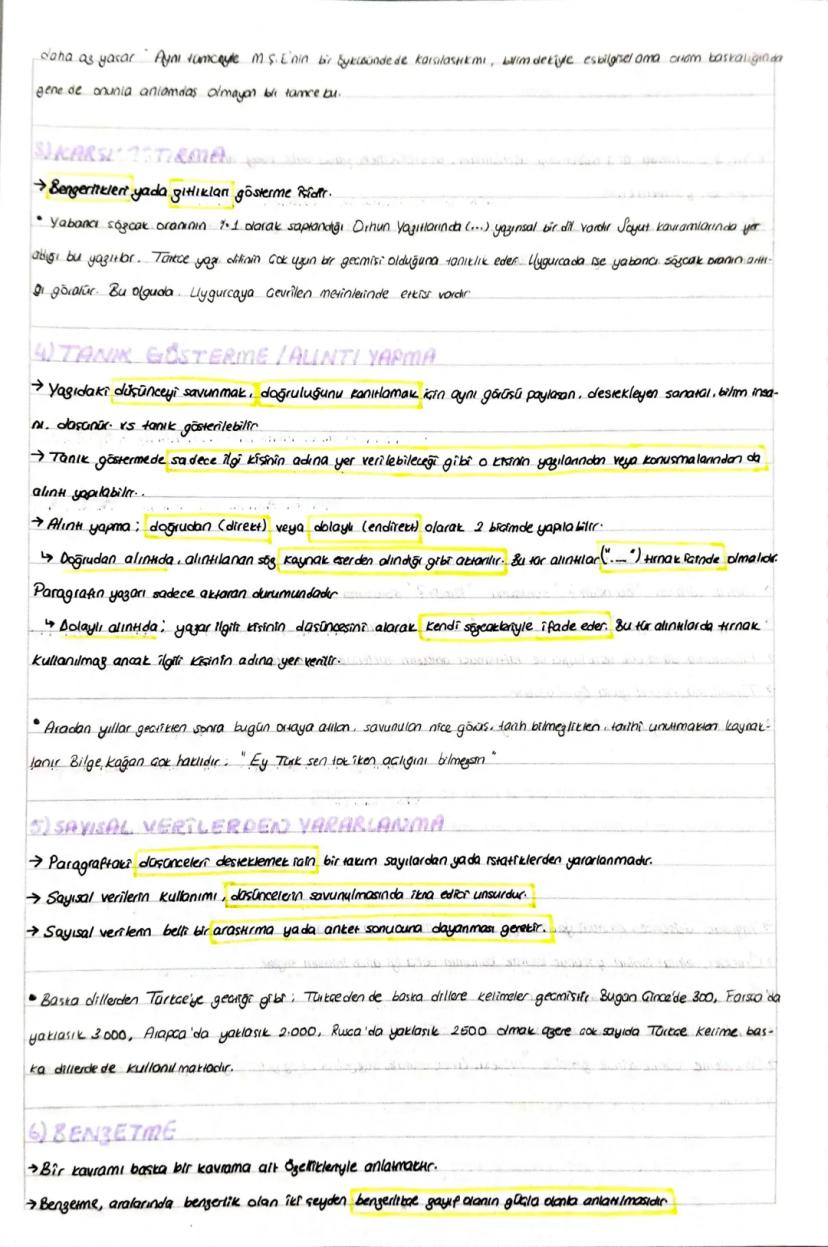 daha az yaşar" Aynı tümceyle M.Ş.E'nin bir öyküsünde de karşılaştık mı, bilimdekiyle eşbilgisel ama ortam başkalığında
gene de onunla anlamdaş olmayan bir tümce bu.
3) KARŞILAŞTIRMA
→ Benzerlikleri yada zıtlıkları gösterme işidir.
• Yabancı sözcük oranının %1 olarak saptandığı Orhun Yazıtlarında (...) yazınsal bir dil vardır Soyut kavramlarında yer
aldığı bu yazıtlar. Türkçe yazı dilinin çok uzun bir geçmişi olduğuna tanıklık eder. Uygurcada ise yabancı sözcük oranın arttı-
ğı görülür. Bu olguda. Uygurcaya çevrilen metinlerinde etkisi vardır
4) TANIK GÖSTERME / ALINTI YAPMA
→ Yazıdaki düşünceyi savunmak, doğruluğunu kanıtlamak için aynı görüşü paylaşan, destekleyen sanatçı, bilim insa-
nı. düşünür. vs tanık gösterilebilir
→ Tanık göstermede sadece ilgi kişinin adına yer verilebileceği gibi o kişinin yazılarından veya konuşmalarından da
alıntı yapılabilir..
→ Alıntı yapma; doğrudan (direkt) veya dolaylı (endirekt) olarak 2 biçimde yapılabilir.
↳ Doğrudan alıntıda, alıntılanan söz kaynak eserden alındığı gibi aktarılır. Bu tür alıntılar ("...") tırnak içinde olmalıdır.
Paragrafın yazarı sadece aktaran durumundadır
↳ Dolaylı alıntıda; yazar ilgili kişinin düşüncesini alarak kendi sözcükleriyle ifade eder. Bu tür alıntılarda tırnak
kullanılmaz ancak ilgili kişinin adına yer verilir.
• Aradan yıllar geçtikten sonra bugün ortaya atılan, savunulan nice görüş, tarih bilmezlikten, tarihi unutmaktan kaynak-
lanır Bilge Kağan çok haklıdır: "Ey Türk sen tok iken açlığını bilmezsin"
5) SAYISAL VERİLERDEN YARARLANMA
→ Paragraftaki düşünceleri desteklemek için bir takım sayılardan yada istatiklerden yararlanmadır.
→ Sayısal verilerin kullanımı, düşüncelerin savunulmasında ikna edici unsurdur.
→ Sayısal verilerin belli bir araştırma yada anket sonucuna dayanması gerekir.
• Başka dillerden Türkçe'ye geçtiği gibi; Türkçeden de başka dillere kelimeler geçmiştir Bugün Çince'de 300, Farsça'da
yaklaşık 3.000, Arapça'da yaklaşık 2.000, Rusça'da yaklaşık 2500 olmak üzere çok sayıda Türkçe kelime baş-
ka dillerde de kullanılmaktadır.
6) BENZETME
→ Bir kavramı başka bir kavrama ait özellikleriyle anlatmaktır.
→ Benzetme, aralarında benzerlik olan iki şeyden benzerlikçe zayıf olanın güçlü olanla anlatılmasıdır.